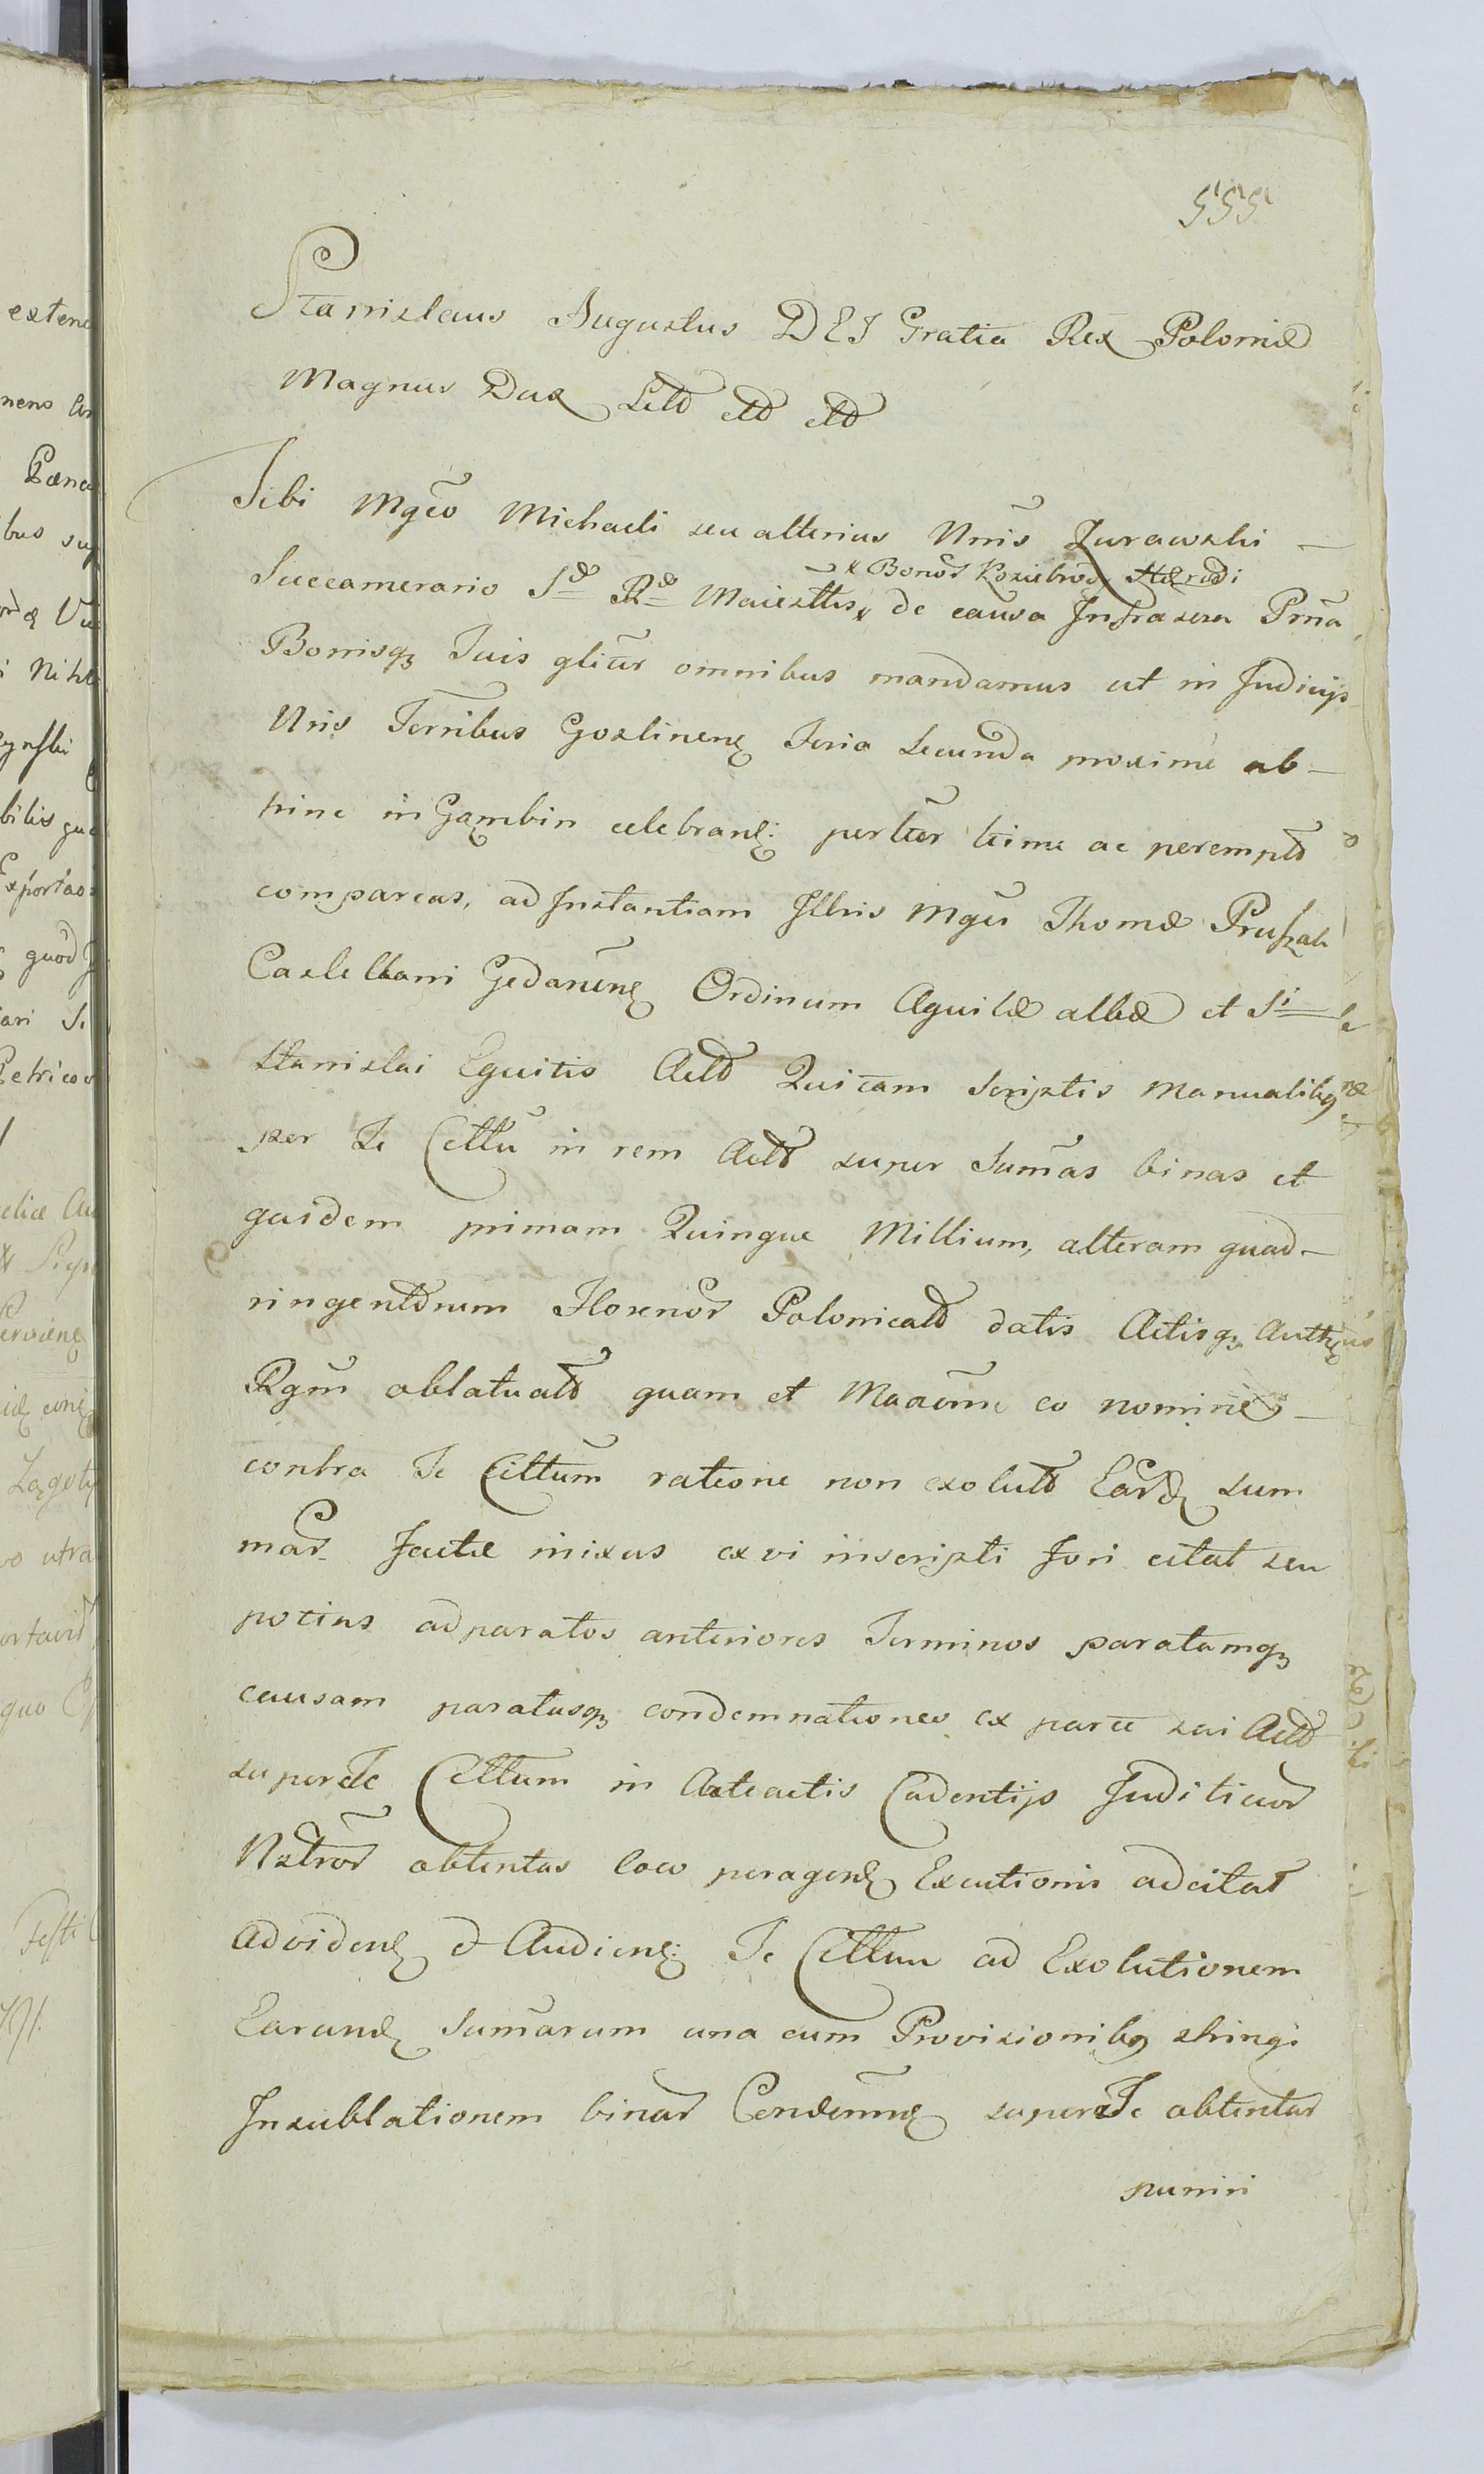 555
Stanislaus Augustus DEI Gratia Rex Poloniæ
Magnus Dux Litt ett ett
Tibi Mgco Michaeli seu alterius Nnis Zurawski —
x Bonor Koziebrod Hæredi
Succamerario Sæ Ræ Maiesttis x de causa Infrascra Prna
Bonisq Tuis gltur omnibus mandamus ut in Judicijs
Nris Terribus Gostinen Feria Secunda proxime ab —
hinc in Gąmbin celebran: perltter ltime ac perempto
compareas, ad Instantiam Illris Mgci Thomæ Pruszak
Castellani Gedanen Ordinum Aquilæ albæ et Si
Stanislai Equitis Actt Qui tam Scriptis Manualibq
per Te Cittu in rem Actt super Sumas binas et
quidem primam Quinque Millium, alteram quad —
ringentorum Florenor Polonicalt datis Actisq Authen
Rgni oblatualt quam et eo nomine —
contra Te Cittum ratione non exolutt Eard sum
mar factæ inixus ex vi inscripti fori citat seu
potius ad paratos anteriores Terminos paratamq
causam paratasq condemnationes ex parte sui Actt
super Te Cittum in Anteactis Cadentijs Juditior
Nstror obtentas loco peragen Exeutionis adcitat
Ad viden et Audien: Te Cittum ad Exolutionem
Earund Sumarum una cum Provisionibq stringi
In sublationem binar Condemn super Te obtentar
puniri